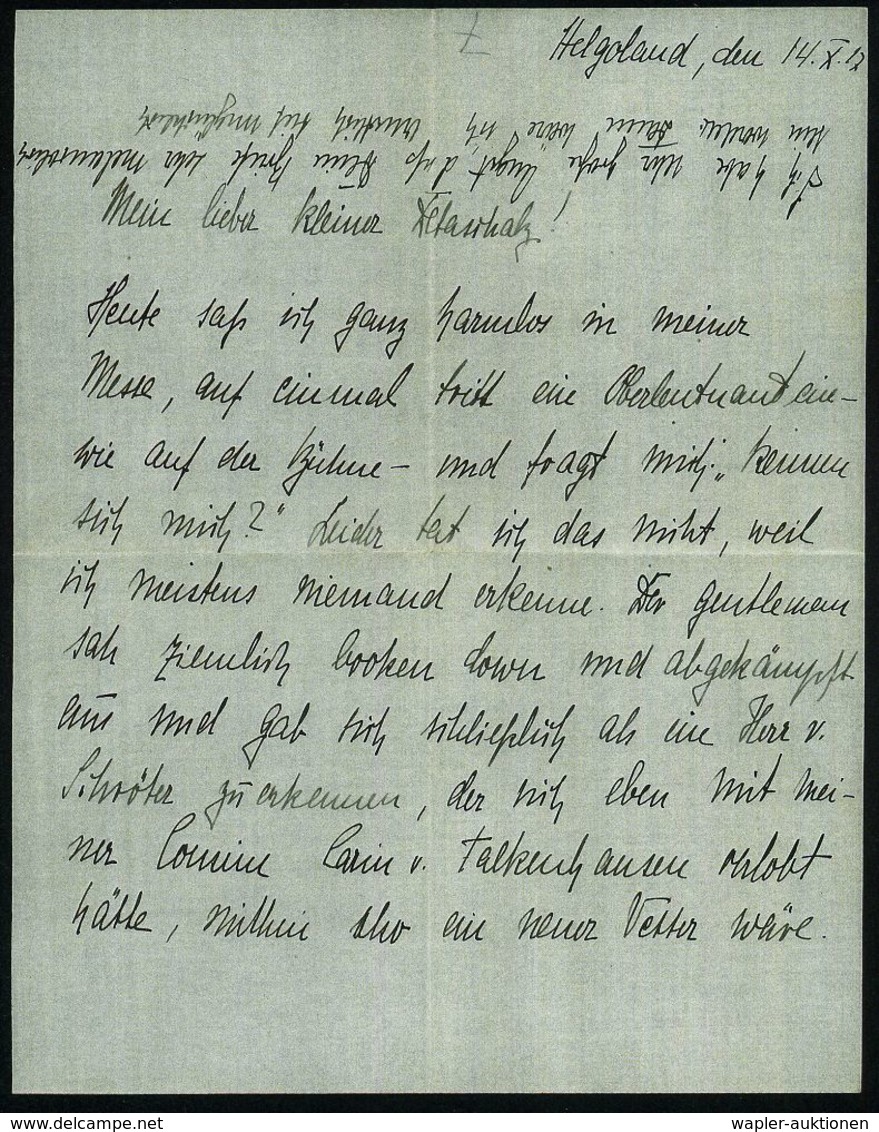 Helgoland, den 14. X. 12
Ich habe sehr große Angst, daß Deine Briefe sehr melancholisch
sein werden. Dann wäre ich wirklich tief unglücklich
Mein lieber kleiner Detaschatz!
Heute saß ich ganz harmlos in meiner
Messe, auf einmal tritt ein Oberleutnant ein –
wie auf der Bühne – und fragt mich: „Kennen
sich mich?" Leider tat ich das nicht, weil
ich meistens niemand erkenne. Der gentleman
sah ziemlich brooken down und abgekämpft
aus und gab sich schließlich als ein Herr v.
Schröter zu erkennen, der sich eben mit mei-
ner Cousine Carin v. Falkenhausen verlobt
hätte, mithin also ein neuer Vetter wäre.
wapler-auktionen